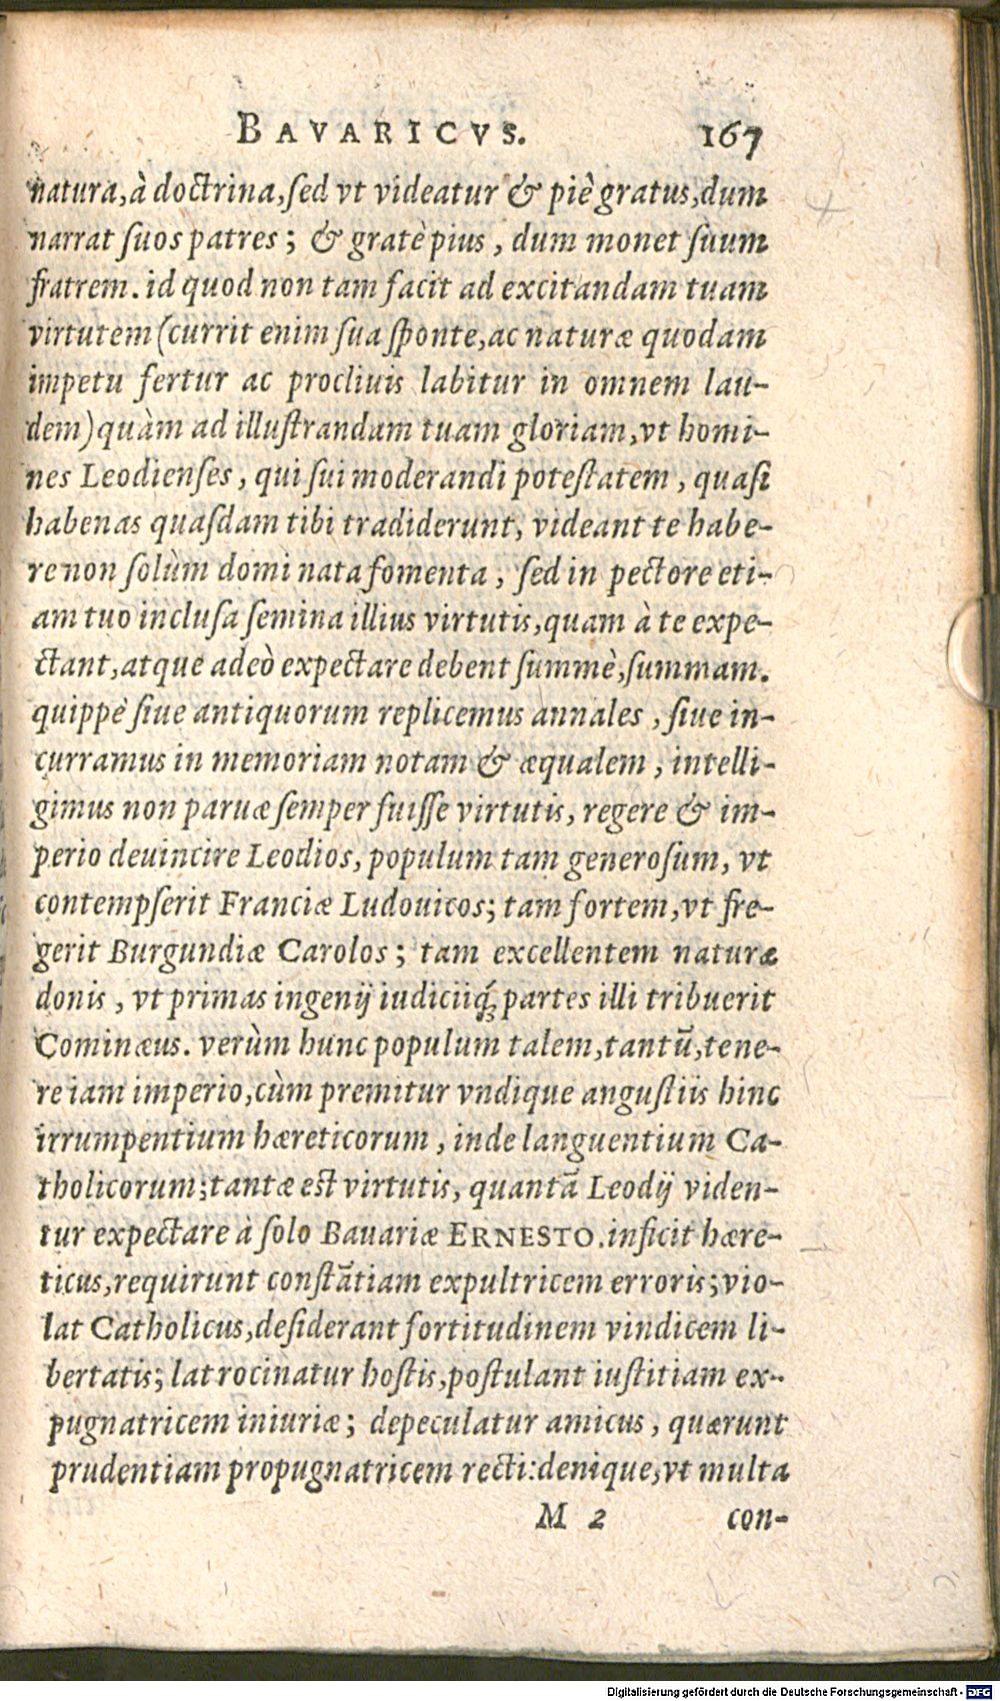 BAVARICVS. 167
natura, à doctrina, sed vt videatur & piè gratus, dum
narrat suos patres; & gratè pius, dum monet suum
fratrem. id quod non tam facit ad excitandam tuam
virtutem (currit enim sua sponte, ac naturæ quodam
impetu fertur ac procliuis labitur in omnem lau-
dem) quàm ad illustrandam tuam gloriam, vt homi-
nes Leodienses, qui sui moderandi potestatem, quasi
habenas quasdam tibi tradiderunt, videant te habe-
re non solùm domi nata fomenta, sed in pectore eti-
am tuo inclusa semina illius virtutis, quam à te expe-
ctant, atque adeò expectare debent summè, summam.
quippè siue antiquorum replicemus annales, siue in-
curramus in memoriam notam & æqualem, intelli-
gimus non paruæ semper fuisse virtutis, regere & im-
perio deuincire Leodios, populum tam generosum, vt
contempserit Franciæ Ludouicos; tam fortem, vt fre-
gerit Burgundiæ Carolos; tam excellentem naturæ
donis, vt primas ingenij iudiciiq́; partes illi tribuerit
Cominæus. verùm hunc populum talem, tantū, tene-
re iam imperio, cùm premitur vndique angustiis hinc
irrumpentium hæreticorum, inde languentium Ca-
tholicorum; tantæ est virtutis, quantā Leodij viden-
tur expectare à solo Bauariæ ERNESTO. inficit hære-
ticus, requirunt constātiam expultricem erroris; vio-
lat Catholicus, desiderant fortitudinem vindicem li-
bertatis; latrocinatur hostis, postulant iustitiam ex-
pugnatricem iniuriæ; depeculatur amicus, quærunt
prudentiam propugnatricem recti: denique, vt multa
M 2 con-
Digitalisierung gefördert durch die Deutsche Forschungsgemeinschaft - DFG